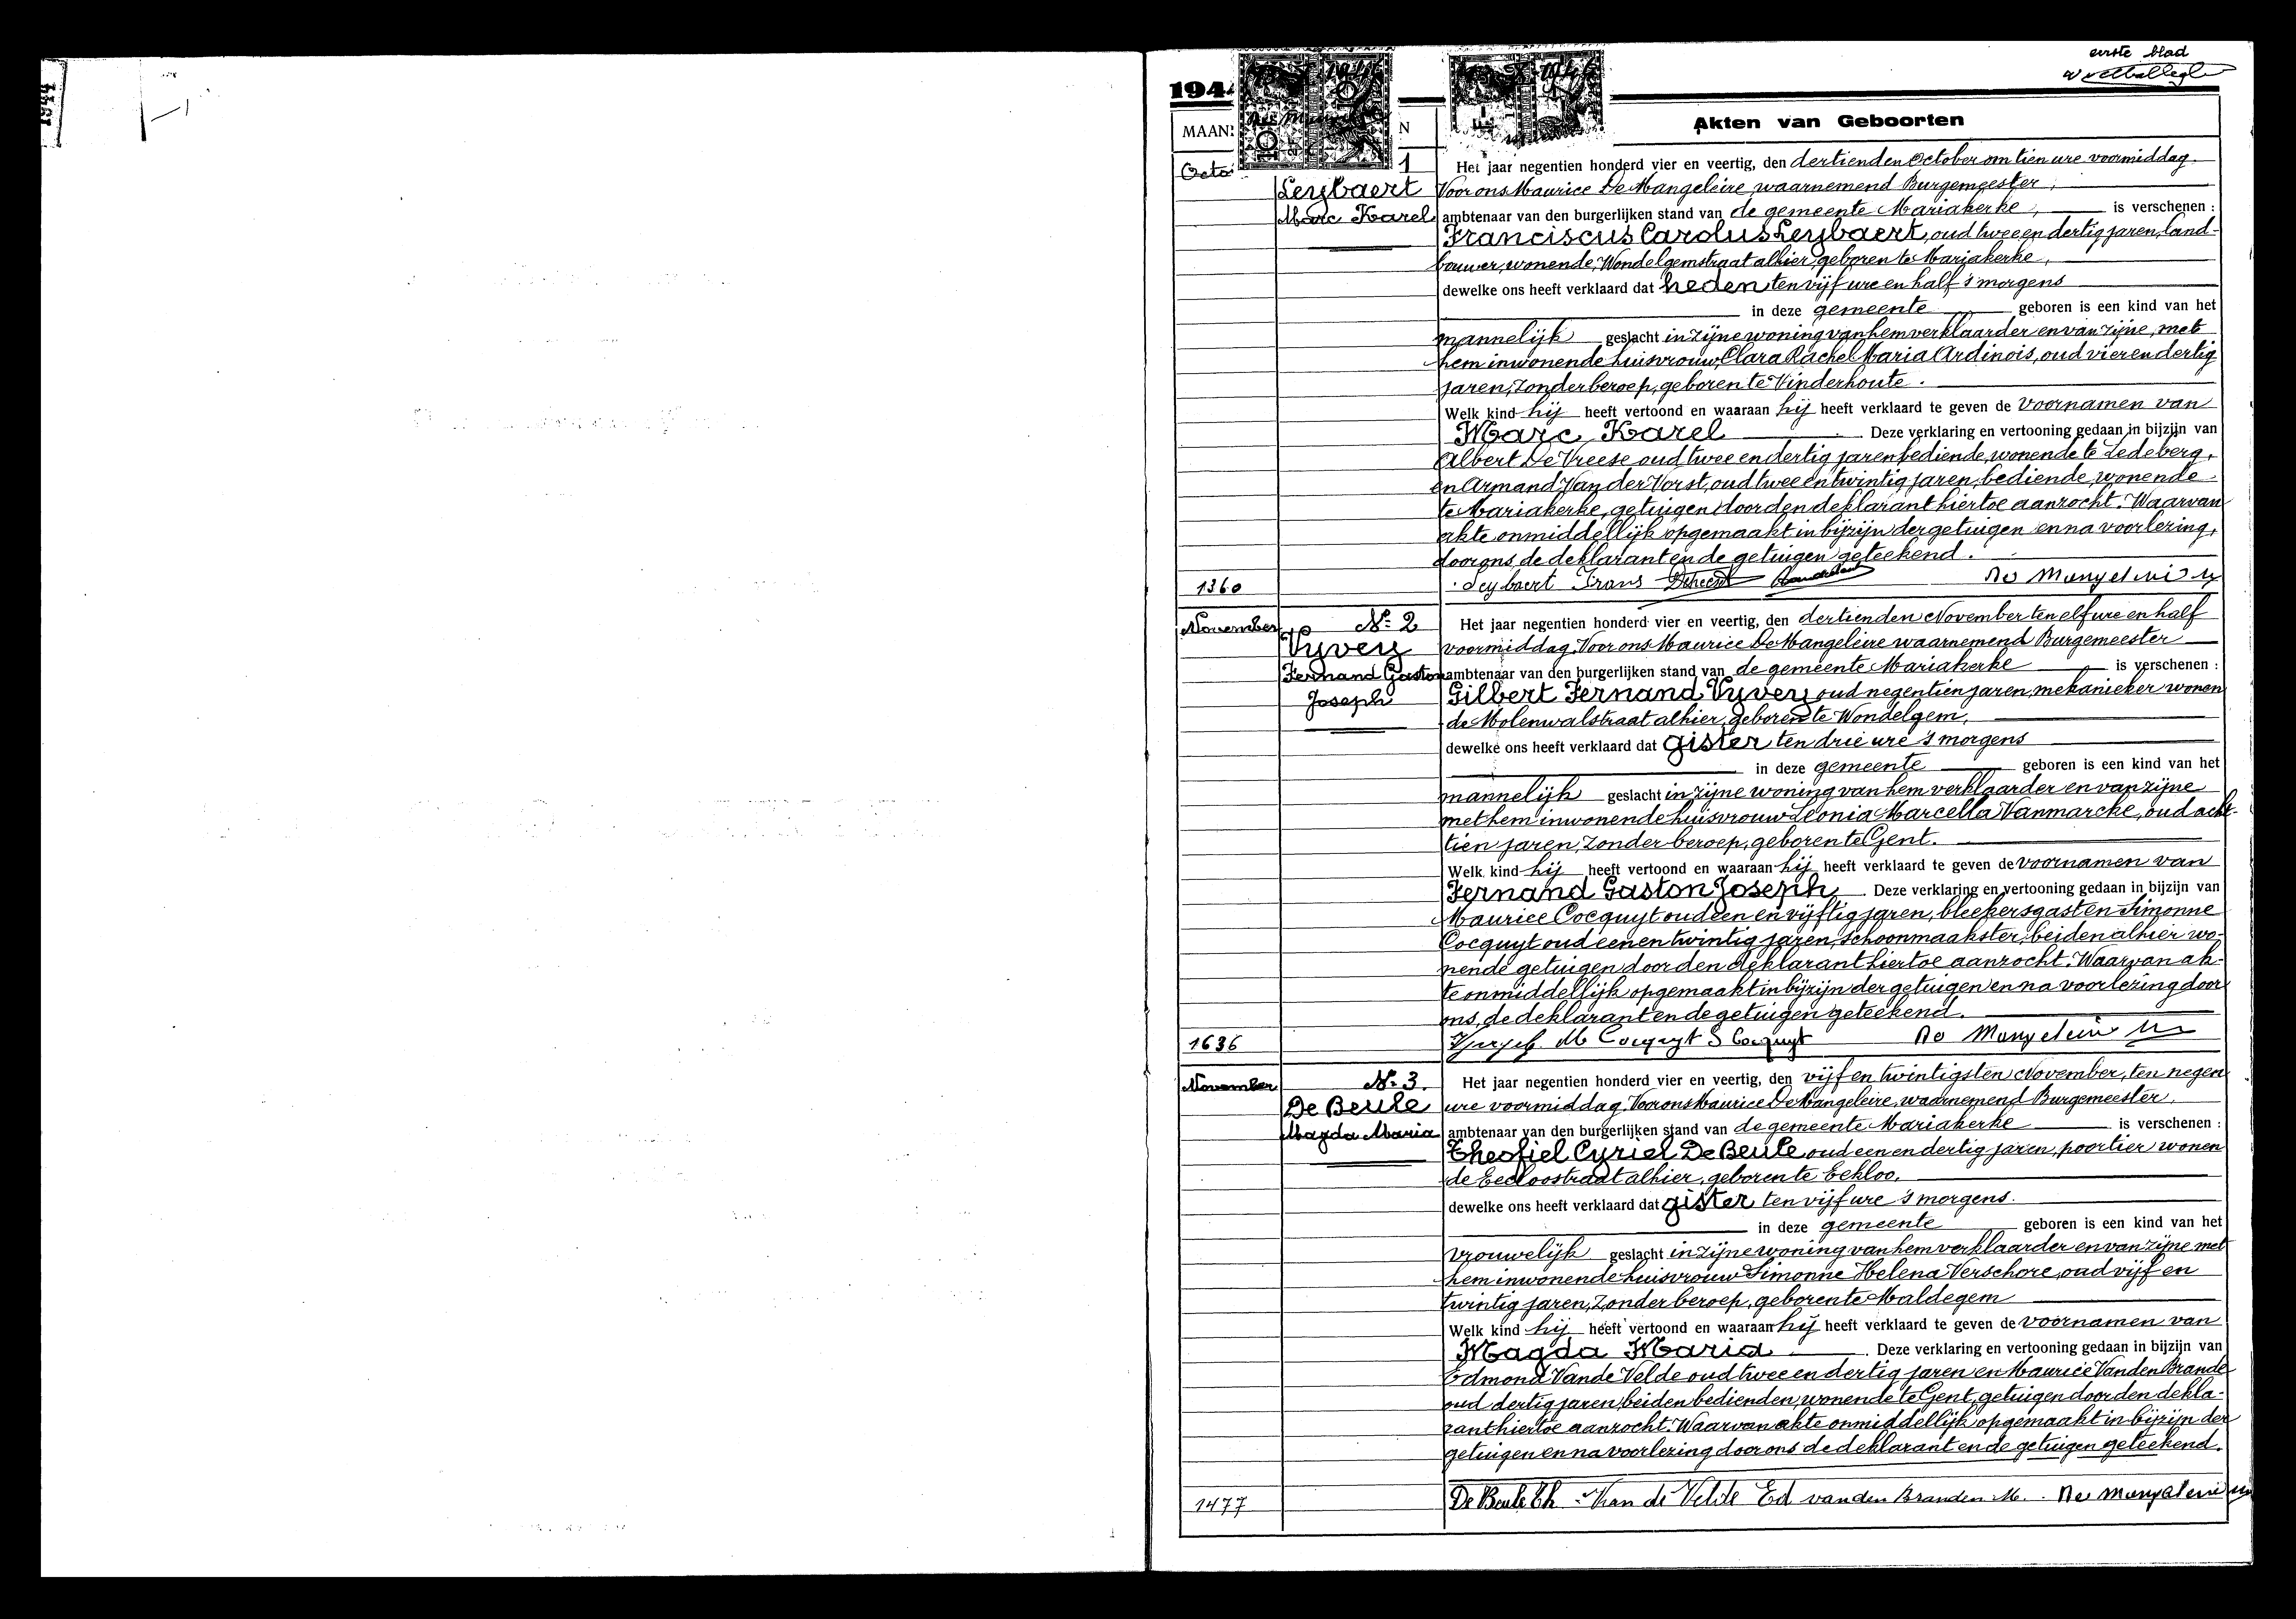 eerste blad
1944
Akten van Geboorten
1
Leybaert
Marc Karel
Het jaar negentien honderd vier en veertig, den dertienden October om tien ure voormiddag.
Voor ons Maurice De Mangeleire, waarnemend Burgemeester,
ambtenaar van den burgerlijken stand van de gemeente Mariakerke, is verschenen :
Franciscus Carolus Leybaert, oud twee en dertig jaren, land-
bouwer, wonende, Wondelgemstraat alhier, geboren te Mariakerke,
dewelke ons heeft verklaard dat heden ten vijf ure en half 's morgens
in deze gemeente geboren is een kind van het
mannelijk geslacht in zijne woning van hem verklaarder en van zijne, met
hem inwonende huisvrouw, Clara Rachel Maria Ardinois, oud vier en dertig
jaren, zonder beroep, geboren te Vinderhoute.
Welk kind hij heeft vertoond en waaraan hij heeft verklaard te geven de voornamen van
Marc Karel Deze verklaring en vertooning gedaan in bijzijn van
Albert De Vreese oud twee en dertig jaren bediende, wonende te Ledeberg,
en Armand Van der Vorst, oud twee en twintig jaren, bediende, wonende
te Mariakerke, getuigen door den deklarant hiertoe aanzocht. Waarvan
akte onmiddellijk opgemaakt in bijzijn der getuigen en na voorlezing,
door ons, de deklarant en de getuigen geteekend.
1360
Leybaert Frans
November
No 2
Vyvey
Fernand Gaston
Joseph
Het jaar negentien honderd vier en veertig, den dertienden November ten elf ure en half
voormiddag. Voor ons Maurice De Mangeleire waarnemend Burgemeester
ambtenaar van den burgerlijken stand van de gemeente Mariakerke is verschenen :
Gilbert Fernand Vyvey oud negentien jaren, mekanieker wonen
de Molenwalstraat alhier, geboren te Wondelgem,
dewelke ons heeft verklaard dat gister ten drie ure 's morgens
in deze gemeente geboren is een kind van het
mannelijk geslacht in zijne woning van hem verklaarder en van zijne
met hem inwonende huisvrouw Leonia Marcella Vanmarcke, oud acht-
tien jaren, zonder beroep, geboren te Gent.
Welk kind hij heeft vertoond en waaraan hij heeft verklaard te geven de voornamen van
Fernand Gaston Joseph Deze verklaring en vertooning gedaan in bijzijn van
Maurice Cocquyt oud een en vijftig jaren, bleekersgast en Simonne
Cocquyt oud een en twintig jaren, schoonmaakster, beiden alhier wo-
nende getuigen door den deklarant hiertoe aanzocht. Waarvan ak-
te onmiddellijk opgemaakt in bijzijn der getuigen en na voorlezing door
ons, de deklarant en de getuigen geteekend.
1636
M Cocquyt S Cocquyt
November
No 3.
De Beule
Magda Maria
Het jaar negentien honderd vier en veertig, den vijf en twintigsten November, ten negen
ure voormiddag. Voor ons Maurice De Mangeleire, waarnemend Burgemeester,
ambtenaar van den burgerlijken stand van de gemeente Mariakerke is verschenen :
Theofiel Cyriel De Beule oud een en dertig jaren, poortier wonen
de Eecloostraat alhier, geboren te Eekloo,
dewelke ons heeft verklaard dat gister ten vijf ure 's morgens.
in deze gemeente geboren is een kind van het
vrouwelijk geslacht in zijne woning van hem verklaarder en van zijne met
hem inwonende huisvrouw Simonne Helena Verschore, oud vijf en
twintig jaren, zonder beroep, geboren te Maldegem
Welk kind hij heeft vertoond en waaraan hij heeft verklaard te geven de voornamen van
Magda Maria Deze verklaring en vertooning gedaan in bijzijn van
Edmond Vande Velde oud twee en dertig jaren en Maurice Vanden Brande
oud dertig jaren, beiden bedienden, wonende te Gent, getuigen door den dekla-
rant hiertoe aanzocht. Waarvan akte onmiddellijk opgemaakt in bijzijn der
getuigen en na voorlezing door ons de deklarant en de getuigen geteekend.
1477
De Beule Th Van de Velde Ed vanden Branden M.